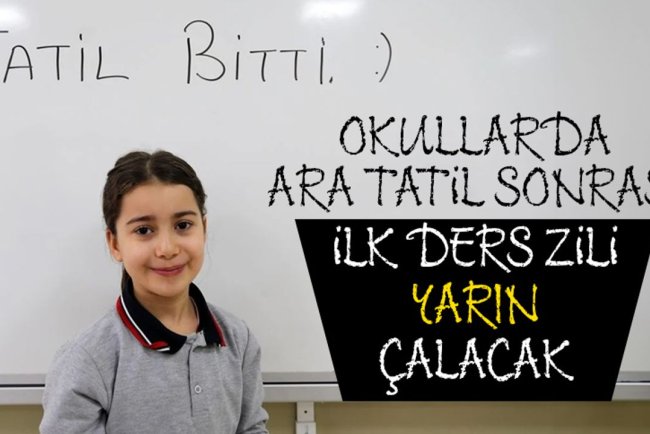 TATİL BİTTİ. :)
OKULLARDA
ARA TATİL SONRAS
İLK DERS ZİLİ
YARIN
ÇALACAK